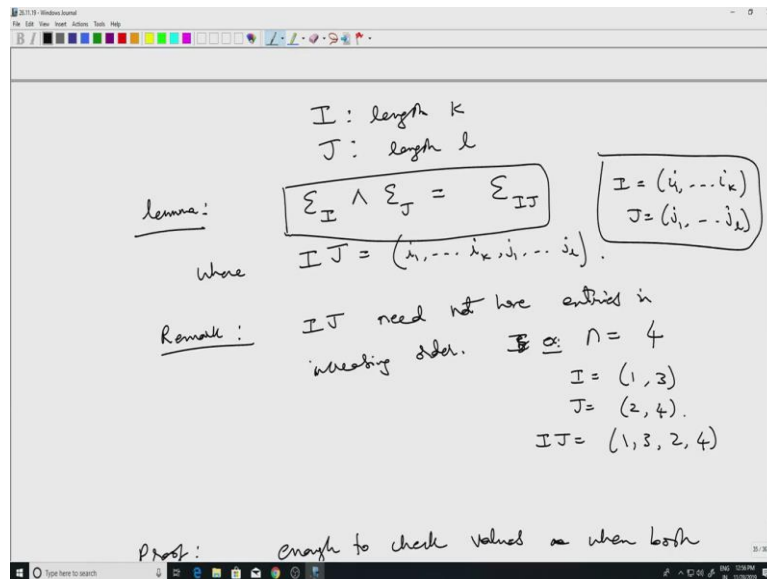 26.11.19 - Windows Journal
File Edit View Insert Actions Tools Help
I : length k
J : length l
lemma: ε_I ∧ ε_J = ε_IJ
I = (i₁, ... i_k)
J = (j₁, ... j_l)
where IJ = (i₁, ... i_k, j₁, ... j_l).
Remark: IJ need not have entries in
increasing order. Ex: n = 4
I = (1, 3)
J = (2, 4).
IJ = (1, 3, 2, 4)
Proof: enough to check values when both
35/38
Type here to search
ENG 12:56 PM
IN 11/26/2019